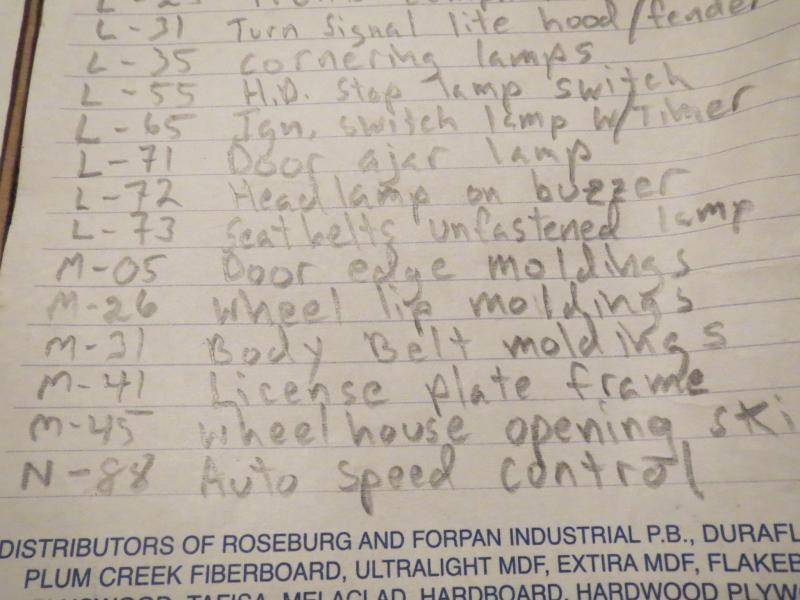 L-31 Turn Signal lite hood/fender
L-35 cornering lamps
L-55 H.D. Stop lamp switch
L-65 Ign. switch lamp w/Timer
L-71 Door ajar lamp
L-72 Headlamp on buzzer
L-73 Seatbelts unfastened lamp
M-05 Door edge moldings
M-26 wheel lip moldings
M-31 Body Belt moldings
M-41 License plate frame
M-45 wheelhouse opening ski
N-88 Auto speed control
DISTRIBUTORS OF ROSEBURG AND FORPAN INDUSTRIAL P.B., DURAFL
PLUM CREEK FIBERBOARD, ULTRALIGHT MDF, EXTIRA MDF, FLAKEB
TAFISA, MELACLAD, HARDBOARD, HARDWOOD PLYW